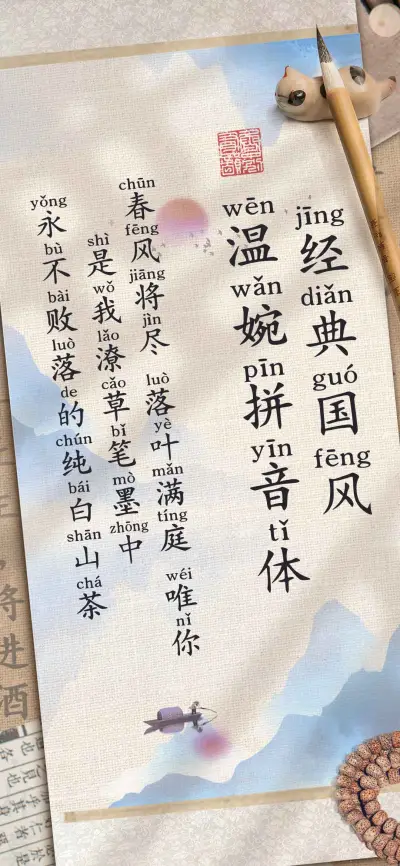 jīng 经 diǎn 典 guó 国 fēng 风
wēn 温 wǎn 婉 pīn 拼 yīn 音 tǐ 体
chūn 春 fēng 风 jiāng 将 jìn 尽 luò 落 yè 叶 mǎn 满 tíng 庭 wéi 唯 nǐ 你
shì 是 wǒ 我 lǎo 潦 cǎo 草 bǐ 笔 mò 墨 zhōng 中
yǒng 永 bù 不 bài 败 luò 落 de 的 chún 纯 bái 白 shān 山 chá 茶
将进酒